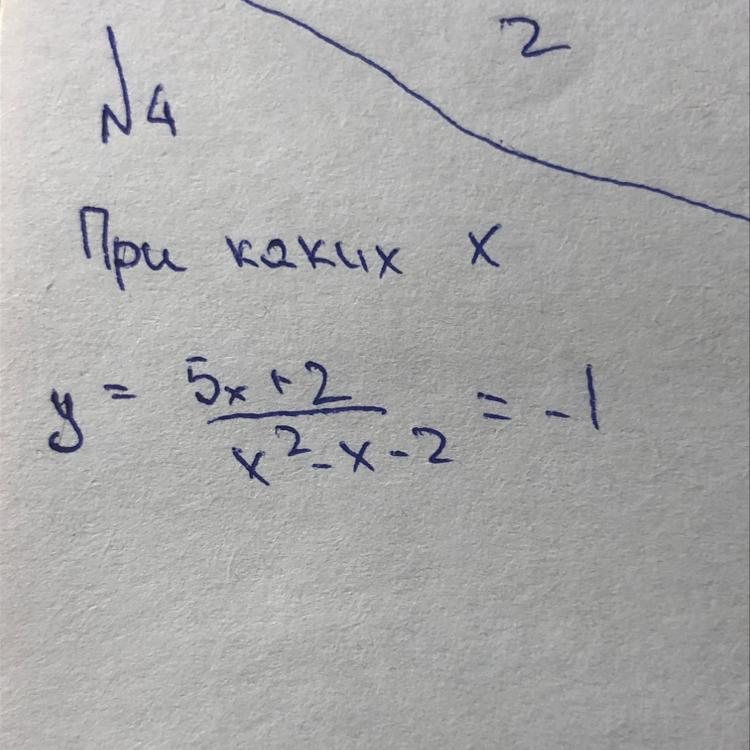 2
№4
При каких x
y = \frac{5x + 2}{x^2 - x - 2} = -1